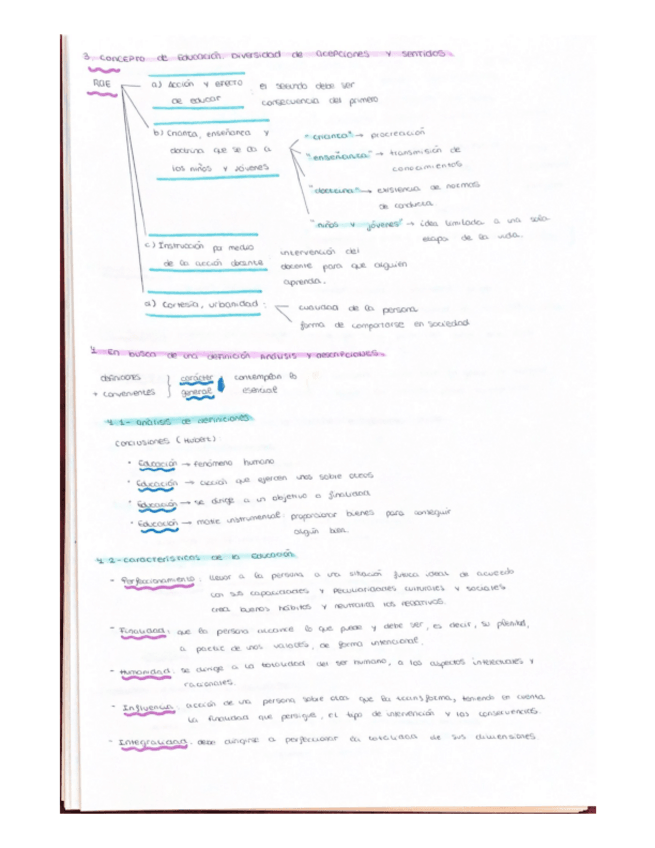 3. Concepto de Educación. Diversidad de acepciones y sentidos.
RAE
a) Acción y efecto : el segundo debe ser
de educar consecuencia del primero
b) Crianza, enseñanza y
doctrina que se da a
los niños y jóvenes
"crianza" → procreación
"enseñanza" → transmisión de
conocimientos.
"doctrina" → existencia de normas
de conducta
"niños y jóvenes" → idea limitada a una sola
etapa de la vida.
c) Instrucción por medio intervención del
de la acción docente docente para que alguien
aprenda.
d) Cortesía, urbanidad : cualidad de la persona
forma de comportarse en sociedad
4. En busca de una definición. Análisis y descripciones.
definiciones carácter contemplan lo
+ convenientes general esencial
4.1- Análisis de definiciones
Conclusiones (Hubert) :
· Educación → fenómeno humano
· Educación → acción que ejercen unos sobre otros
· Educación → se dirige a un objetivo o finalidad
· Educación → matiz instrumental: proporcionar bienes para conseguir
algún bien.
4.2- características de la Educación
- Perfeccionamiento : llevar a la persona a una situación futura ideal de acuerdo
con sus capacidades y peculiaridades culturales y sociales
crea buenos hábitos y neutraliza los negativos.
- Finalidad : que la persona alcance lo que puede y debe ser, es decir, su plenitud,
a partir de unos valores, de forma intencional.
- Humanidad : se dirige a la totalidad del ser humano, a los aspectos intelectuales y
racionales.
- Influencia : acción de una persona sobre otra que la transforma, teniendo en cuenta
la finalidad que persigue, el tipo de intervención y las consecuencias.
- Integralidad : debe dirigirse a perfeccionar la totalidad de sus dimensiones